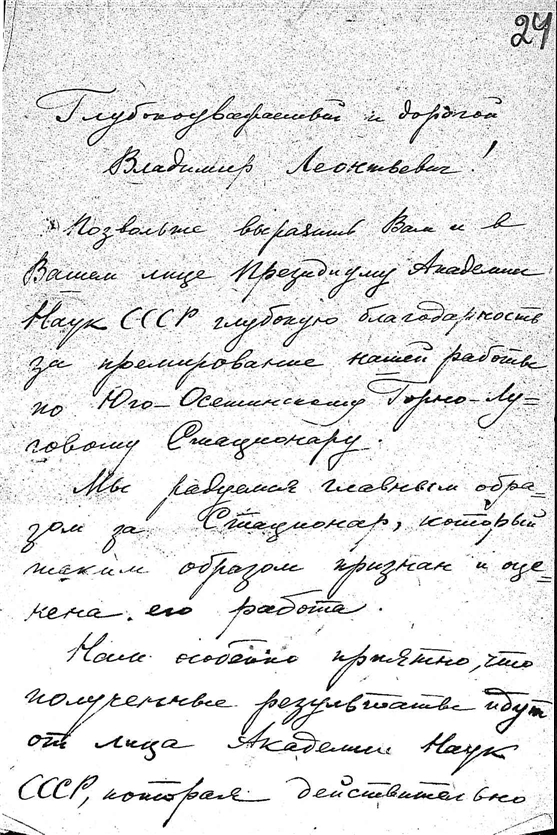 24
Глубокоуважаемый и дорогой
Владимир Леонтьевич!
Позвольте выразить Вам и в
Вашем лице Президиуму Академии
Наук СССР глубокую благодарность
за премирование нашей работы
по Юго-Осетинскому Горно-Лу=
говому Стационару.
Мы радуемся главным обра-
зом за Стационар, который
таким образом признан и оце=
нена его работа.
Нам особенно приятно, что
полученные результаты идут
от лица Академии Наук
СССР, которая действительно